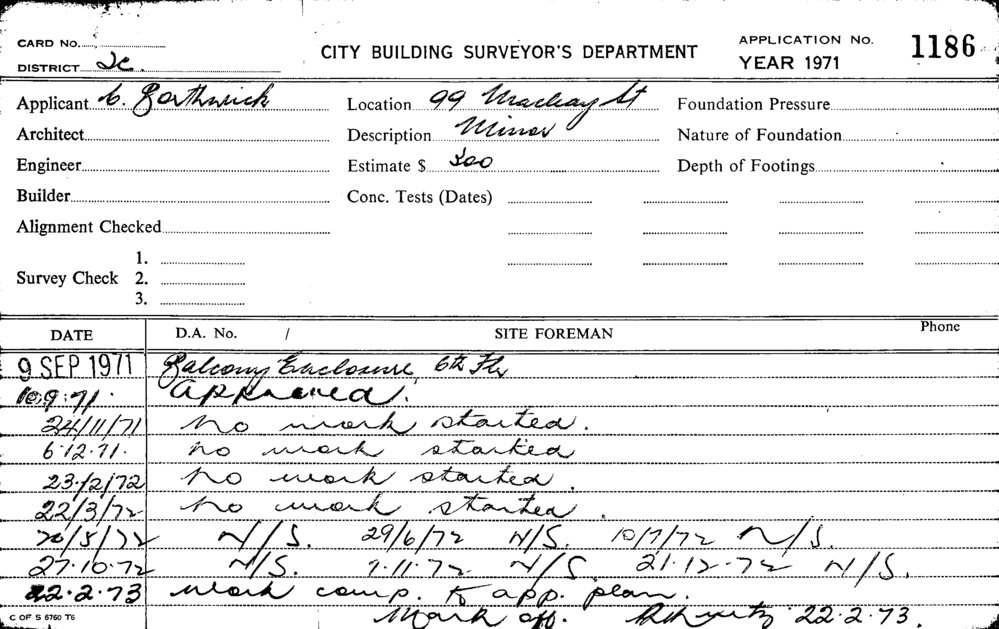 CARD No.
CITY BUILDING SURVEYOR'S DEPARTMENT
APPLICATION No. 1186
DISTRICT
YEAR 1971
Applicant C. Borthwick Location 99 Macleay St Foundation Pressure
Architect Description Minor Nature of Foundation
Engineer Estimate $ 300 Depth of Footings
Builder Conc. Tests (Dates)
Alignment Checked
1.
Survey Check 2.
3.
DATE D.A. No. / SITE FOREMAN Phone
9 SEP 1971 Balcony Enclosure 6th Flr
10.9.71. Approved.
24/11/71 no work started.
6.12.71. no work started
23/2/72 no work started.
22/3/72 no work started.
20/5/72 N/S. 29/6/72 N/S. 10/7/72 N/S.
27.10.72 N/S. 7.11.72 N/S. 21.12.72 N/S.
22.2.73 work comp. to app. plan.
Mark off. 22.2.73.
C OF S 6760 T6